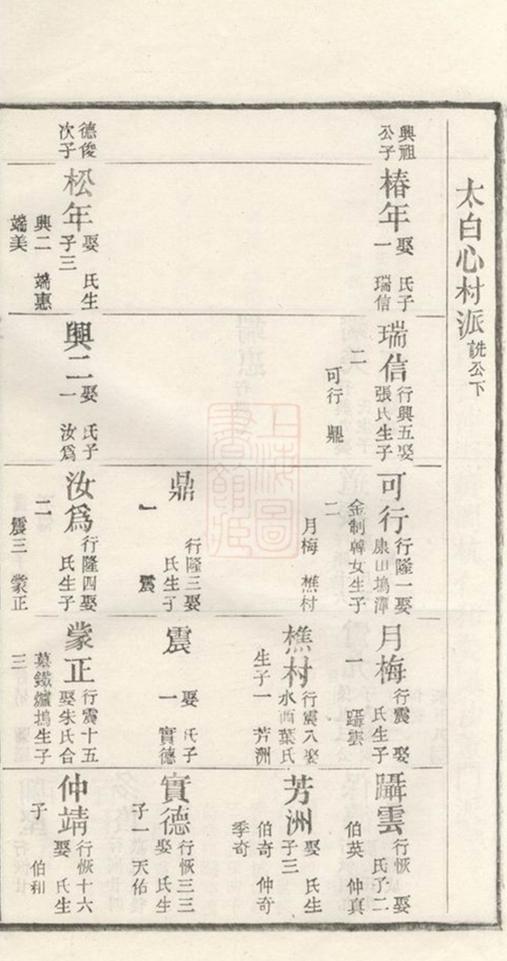 太白心村派 詵公下
興祖公子 椿年 娶 氏子一 瑞信
德俊次子 松年 娶 氏生子三 興二 端惠 端美
瑞信 行興五娶張氏生子二 可行 鼎
興二 娶 氏子一 汝爲
可行 行隆一娶康山塢潭金制韓女生子二 月梅 樵村
鼎 行隆三娶 氏生子一 震
汝爲 行隆四娶 氏生子二 震三 蒙正
月梅 行震 娶 氏生子一 躡雲
樵村 行震八娶水西葉氏生子一 芳洲
震 娶 氏子一 實德
蒙正 行震十五娶朱氏合墓鐵爐塢生子三
躡雲 行恢 娶 氏子二 伯英 仲真
芳洲 娶 氏生子三 伯奇 仲奇 季奇
實德 行恢三三娶 氏生子一 天佑
仲靖 行恢十六娶 氏生子 伯和
上海圖書館藏